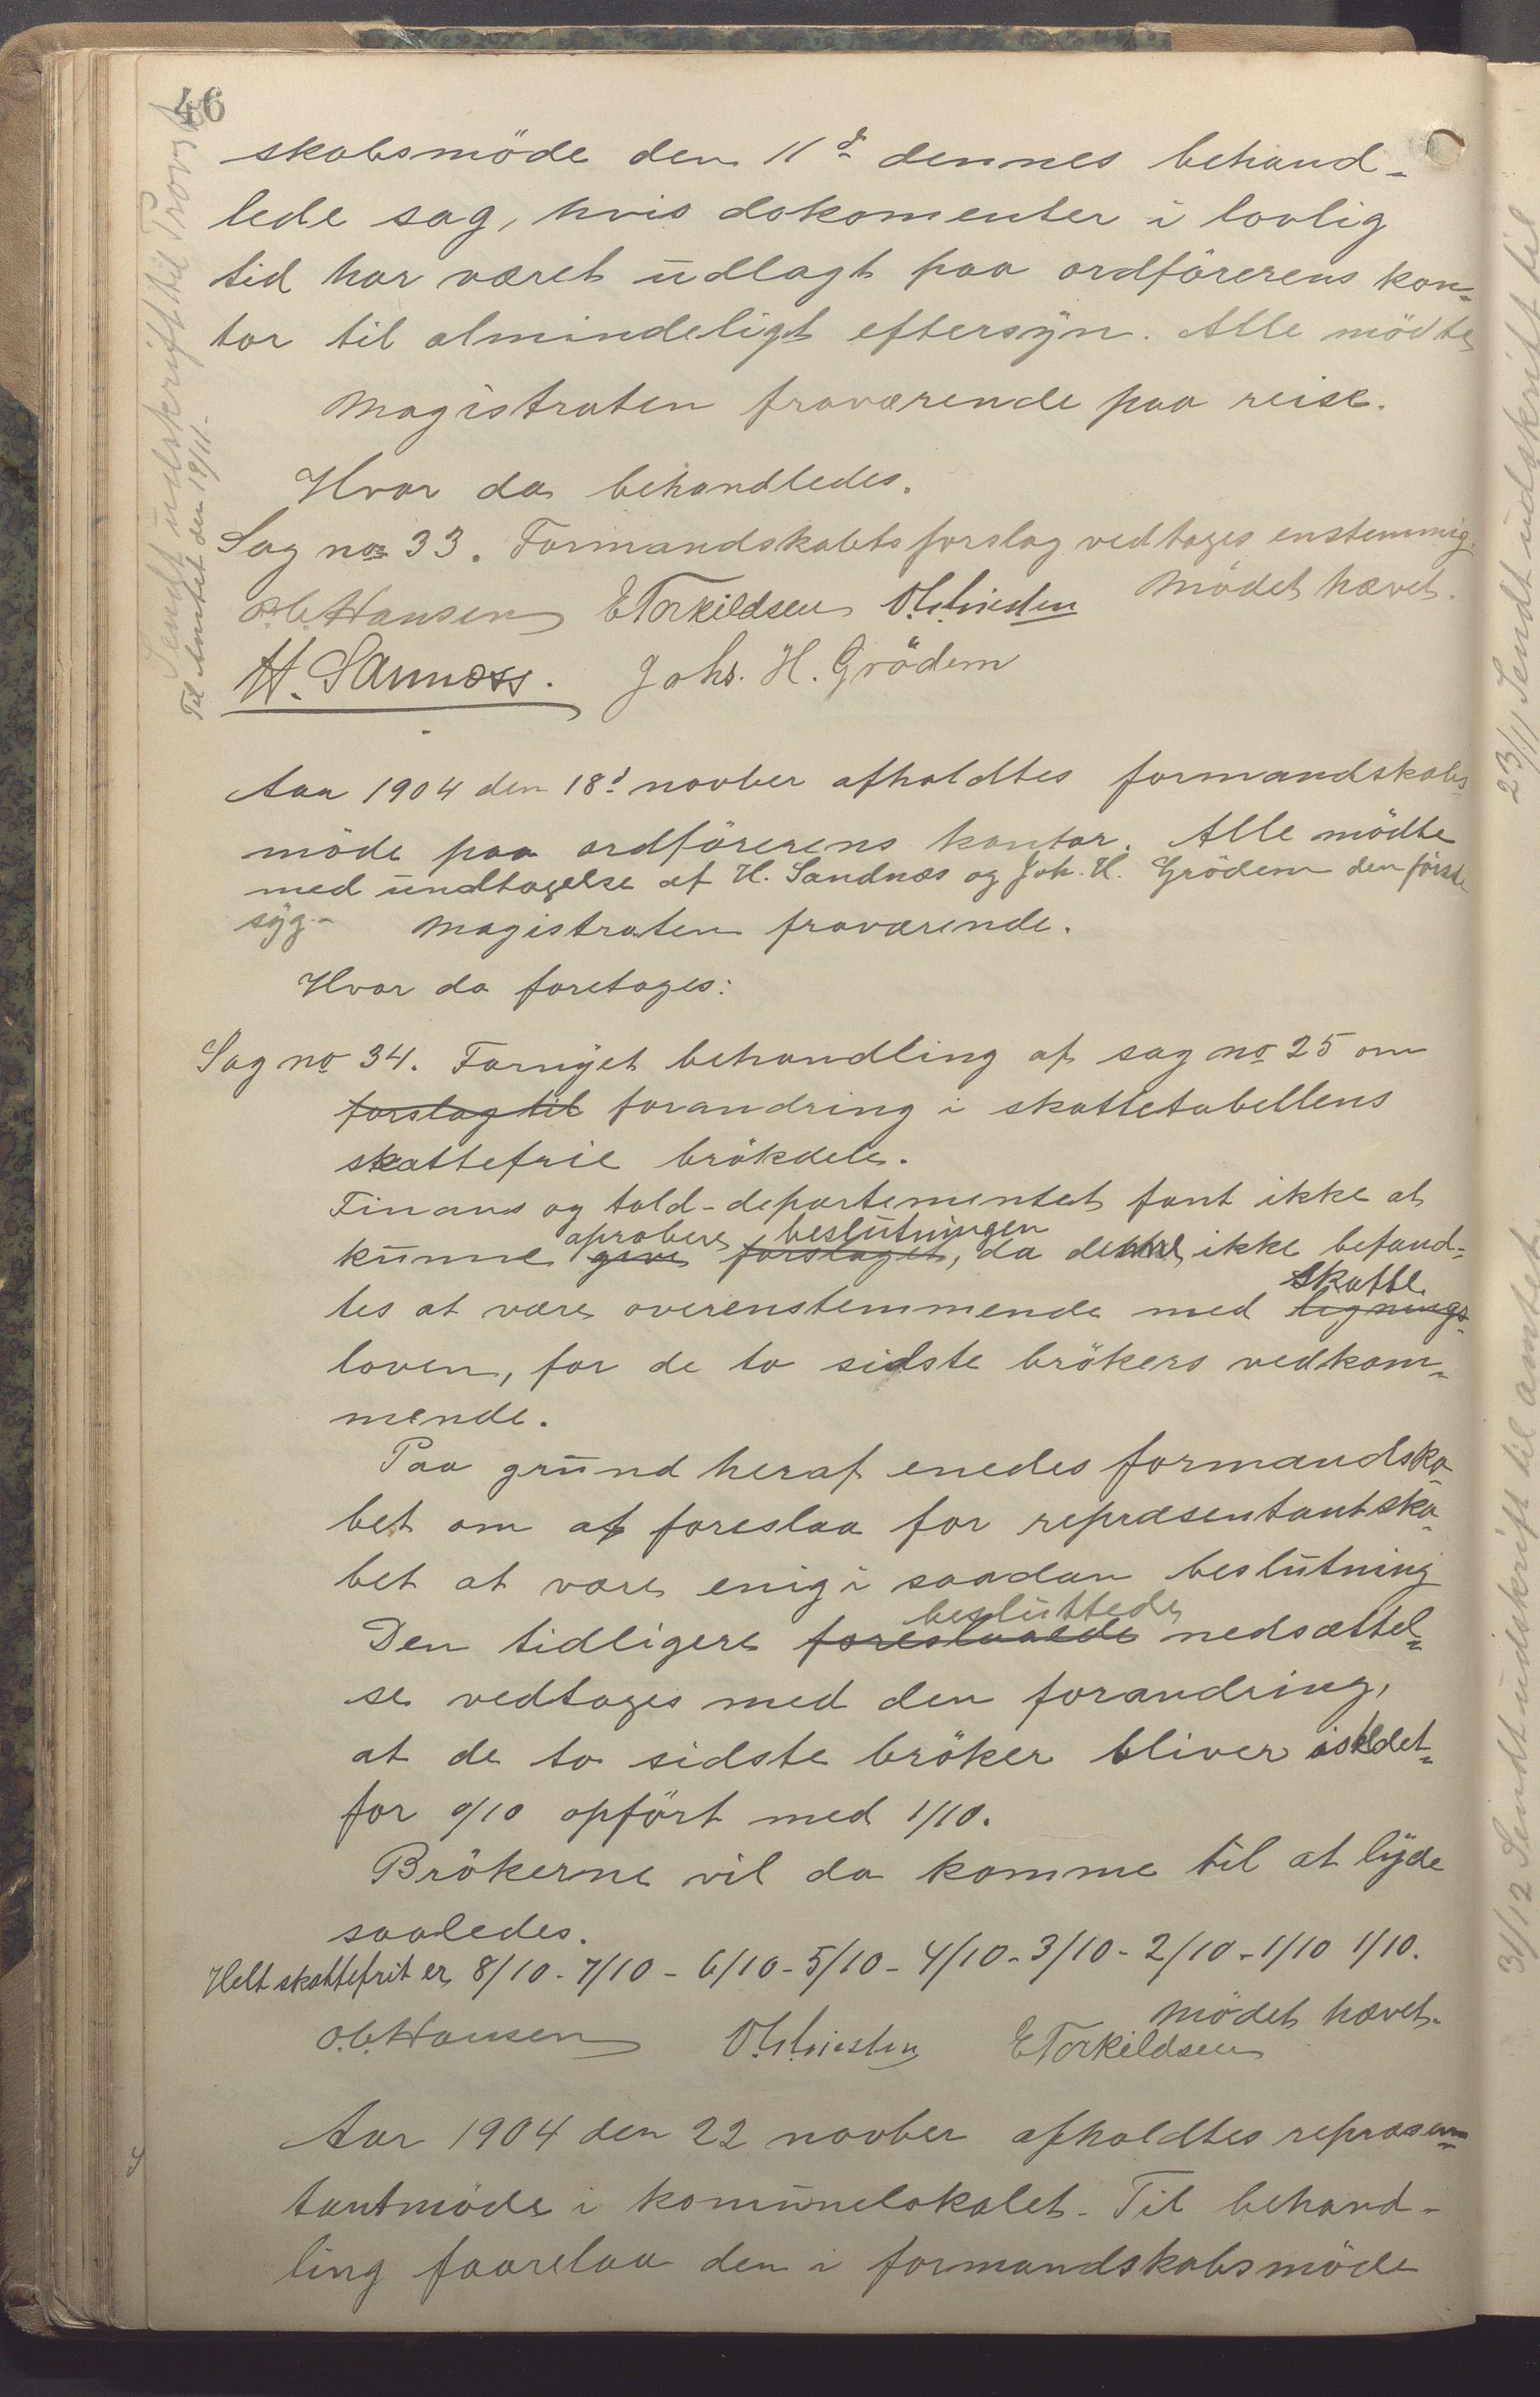 46
skabsmöde den 11d dennes behand-
lede sag, hvis dokomenter i lovlig
tid har været udlagt paa ordförerens kon-
tor til almindeligt eftersyn. Alle mödte
Magistraten fraværende paa reise.
Hvor da behandledes.
Sag no 33. Formandskabets forslag vedtages enstemmig.
Mödet hævet.
O.C. Hansen ETorkildsen
H. Sannæss. Johs. H. Grödem
Aar 1904 den 18d novber afholdtes formandskabs-
möde paa ordförerens kontor. Alle mödte
med undtagelse af H. Sandnæs og Joh. H. Grödem den förste
syg- Magistraten fraværende.
Hvor da foretages:
Sag no 34. Fornyet behandling af sag no 25 om
forslag til forandring i skattetabellens
skattefrie brökdele.
Finans og told-departementet fant ikke at
aprobere beslutningen
kunne give forslaget, da denne ikke befand-
skatte
tes at være overenstemmende med lignings-
loven, for de to sidste brökers vedkom-
mende.
Paa grund heraf enedes formandska-
bet om at foreslaa for repræsentantska-
bet at være enig i saadan beslutning
besluttede
Den tidligere foreslaaede nedsættel-
se vedtages med den forandring,
at de to sidste bröker bliver istedet-
for 0/10 opfört med 1/10.
Brökerne vil da komme til at lyde
saaledes.
Helt skattefrit er 8/10 - 7/10 - 6/10 - 5/10 - 4/10 - 3/10 - 2/10 - 1/10 1/10.
Mödet hævet.
O.C. Hansen ETorkildsen
Aar 1904 den 22 novber afholdtes repræsen-
tantmöde i komunelokalet. Til behand-
ling faarelaa den i formandskabsmöde
Sendt udskrift til Provst
Til Amtet den 19/11-
23/11 Sendt udskrift til
31/12 Sendt udskrift til amtet